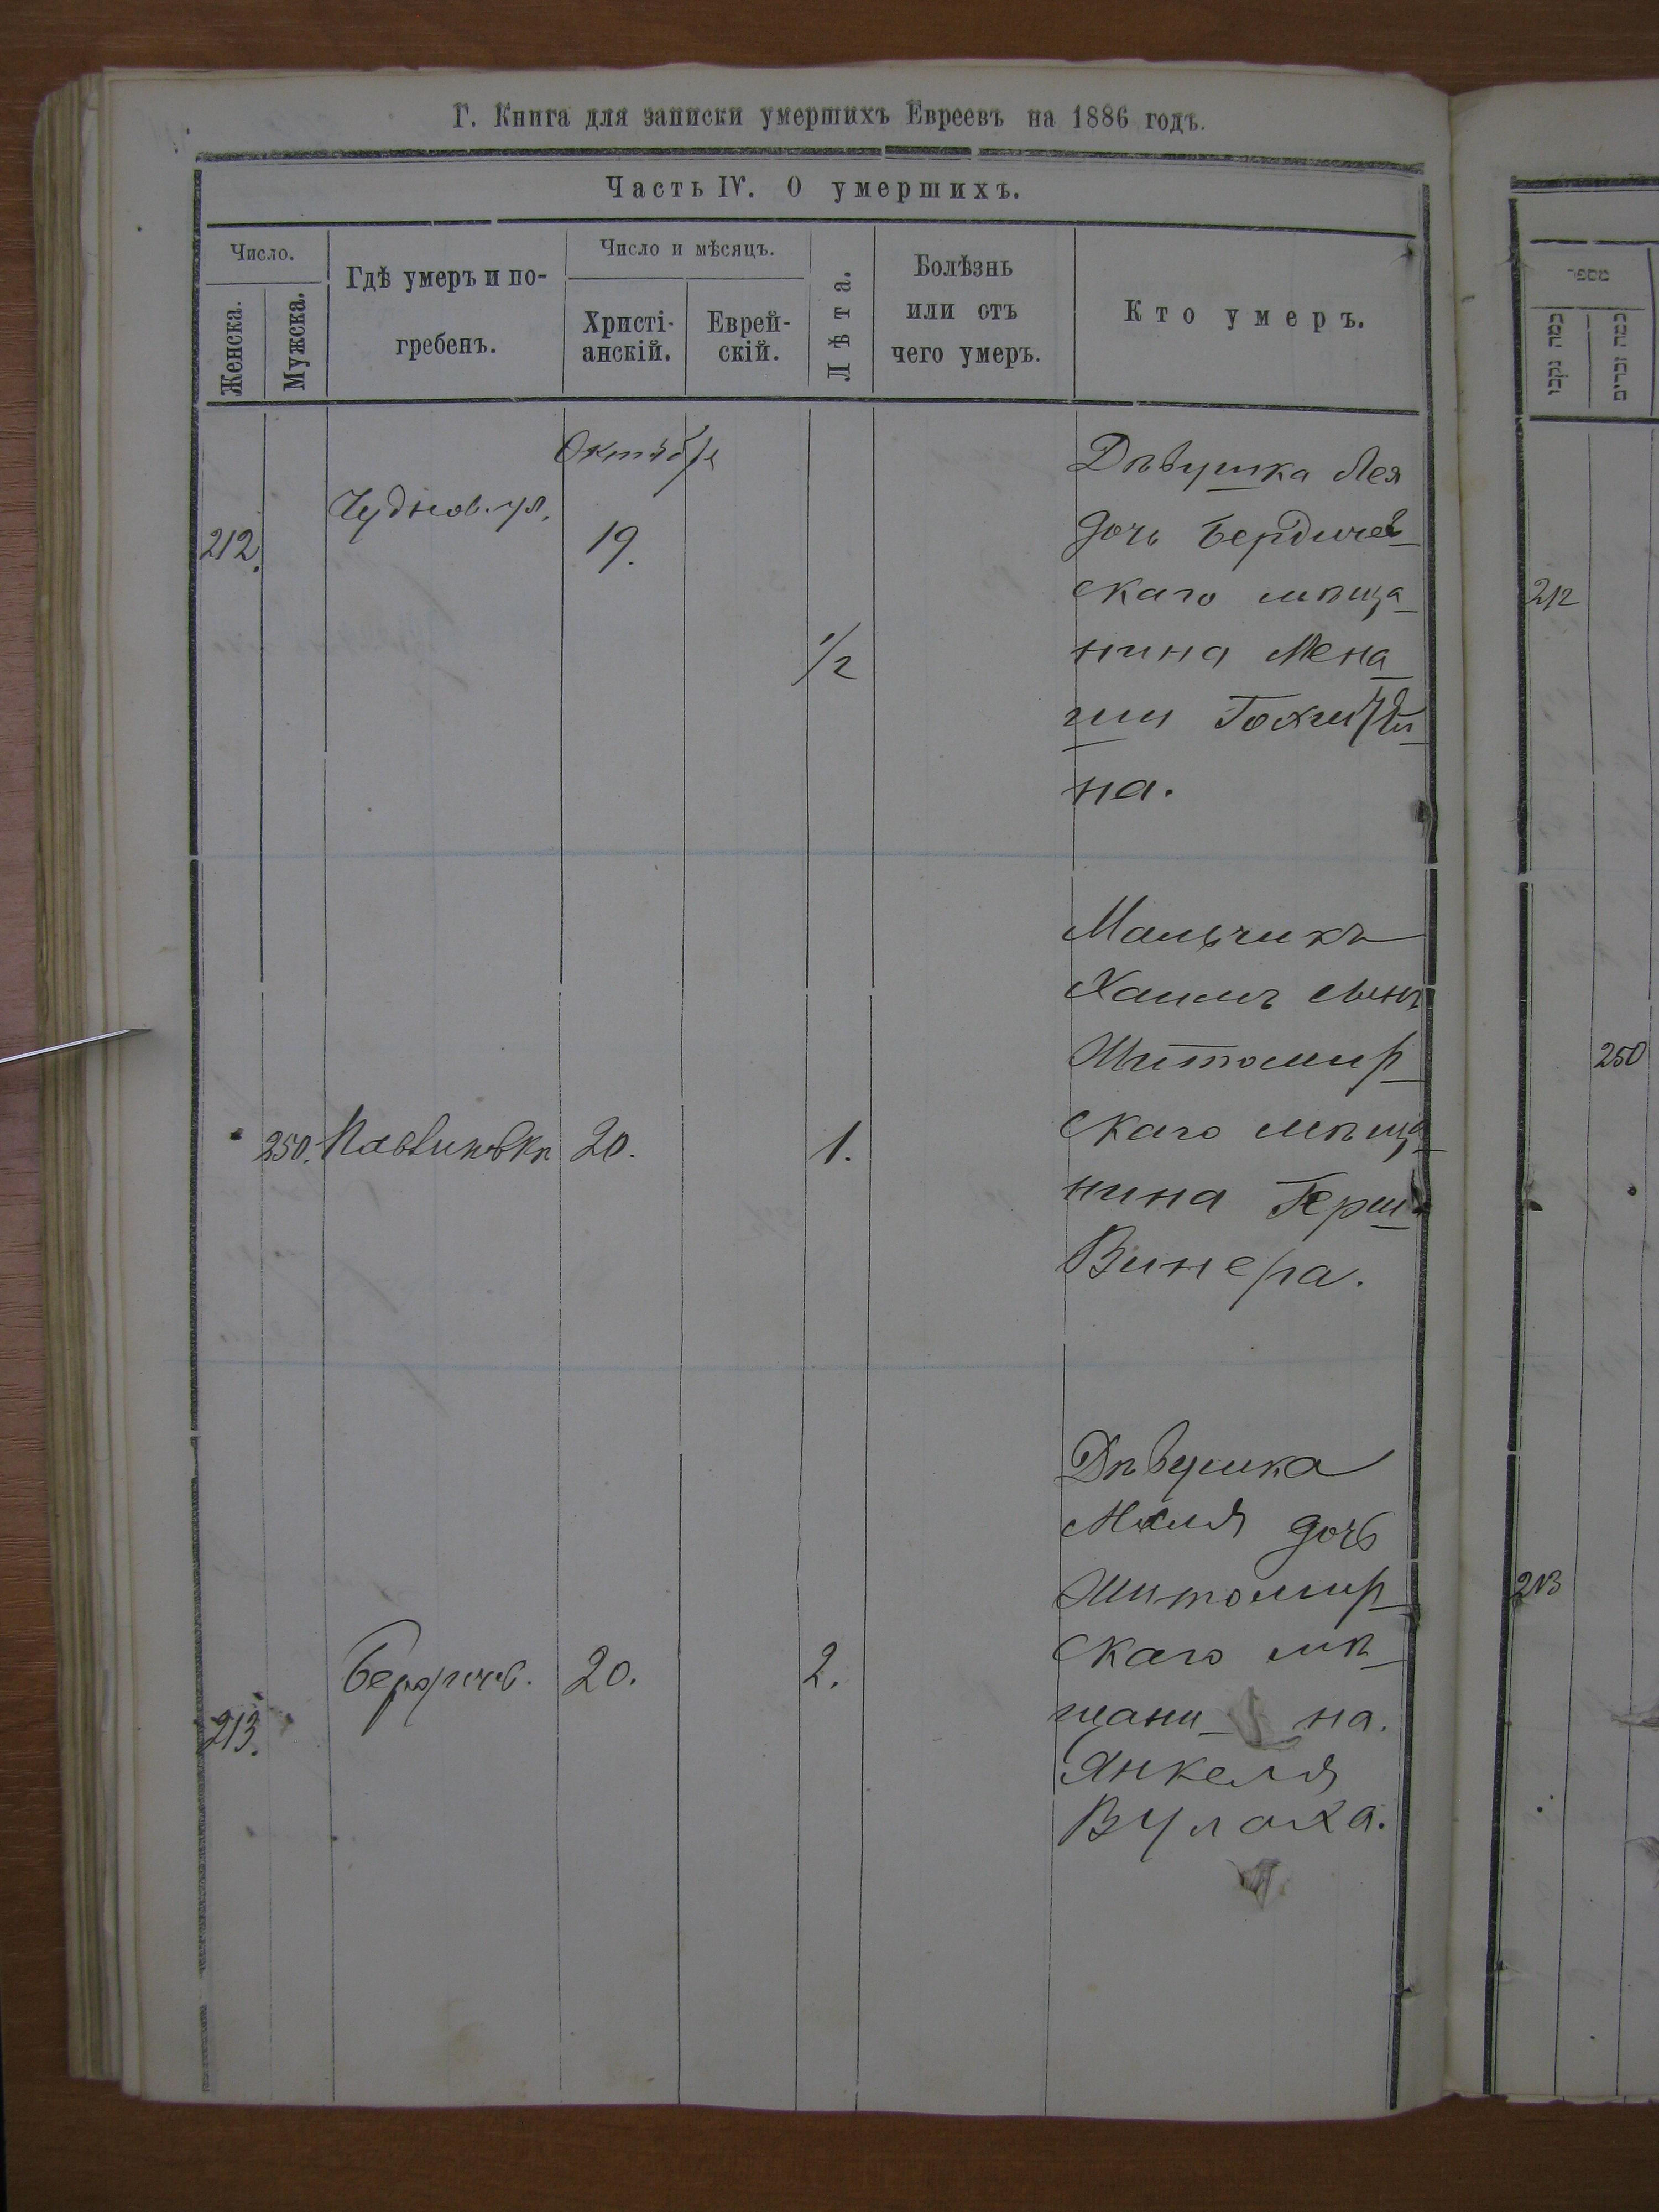 Г. Книга для записки умершихъ Евреевъ на 1886 годъ.
Часть IV. О умершихъ.
Число.
Женска.
Мужска.
Гдѣ умеръ и по-
гребенъ.
Число и мѣсяцъ.
Христі-
анскій.
Еврей-
скій.
Лѣта.
Болѣзнь
или отъ
чего умеръ.
Кто умеръ.
Октября
212.
Чуднов. ул.
19.
1/2
Дѣвушка Лея
дочь Бердичев
скаго мѣща
нина Мена
ши
на.
250.
20.
1.
Мальчикъ
Хаимъ сынъ
Житомир
скаго мѣща
нина Герш
Винера.
213.
Бердичев.
20.
2.
Дѣвушка
дочь
Житомир
скаго мѣ
щани на.
Янкеля
Вулаха.
מספר
במה נקבו
במה זכרים
212
250
213